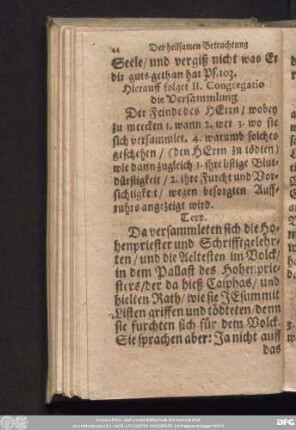 44 Der heilsamen Betrachtung
Seele/ und vergiß nicht was Er
dir guts gethan hat Ps. 103.
Hierauff folget II. Congregatio
die Versammlung
Der Feinde des HErrn/ wobey
zu mercken 1. wann 2. wer 3. wo sie
sich versammlet. 4. warumb solches
geschehen/ (den HErrn zu tödten)
wie dann zugleich 1. ihre listige Blut-
dürstigkeit/ 2. ihre Furcht und Vor-
sichtigkeit/ wegen besorgten Auff-
ruhrs angezeigt wird.
Text.
Da versammleten sich die Ho-
henpriester und Schrifftgelehr-
ten/ und die Aeltesten im Volck/
in dem Pallast des Hohenprie-
sters/ der da hieß Caiphas/ und
hielten Rath/ wie sie JEsum mit
Listen griffen und tödteten/ denn
sie furchten sich für dem Volck.
Sie sprachen aber: Ja nicht auff
das